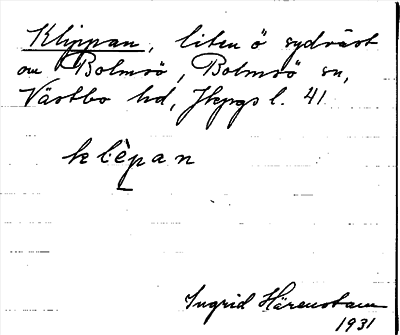 Klippan, liten ö sydväst
om Bolmsö, Bolmsö sn,
Västbo hd, Jkpgs l. 41
klèpan
Ingrid Härenstam
1931